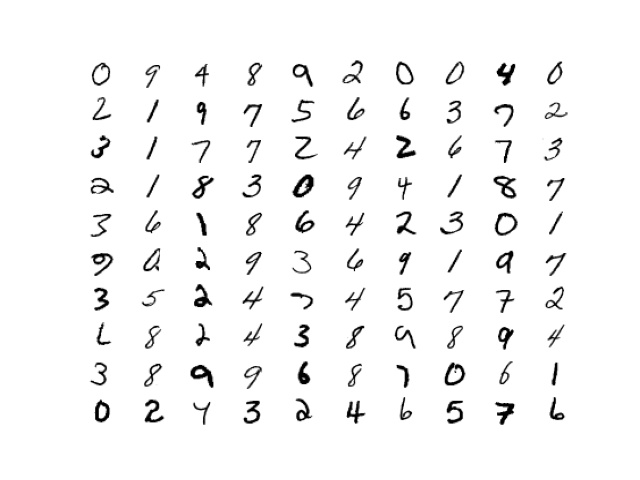 0 9 4 8 9 2 0 0 4 0
2 1 9 7 5 6 6 3 7 2
3 1 7 7 2 4 2 6 7 3
2 1 8 3 0 9 4 1 8 7
3 6 1 8 6 4 2 3 0 1
9 0 2 9 3 6 9 1 9 7
3 5 2 4 7 4 5 7 7 2
8 2 4 3 8 9 8 9 4
3 8 9 9 6 8 7 0 6 1
0 2 4 3 2 4 6 5 7 6